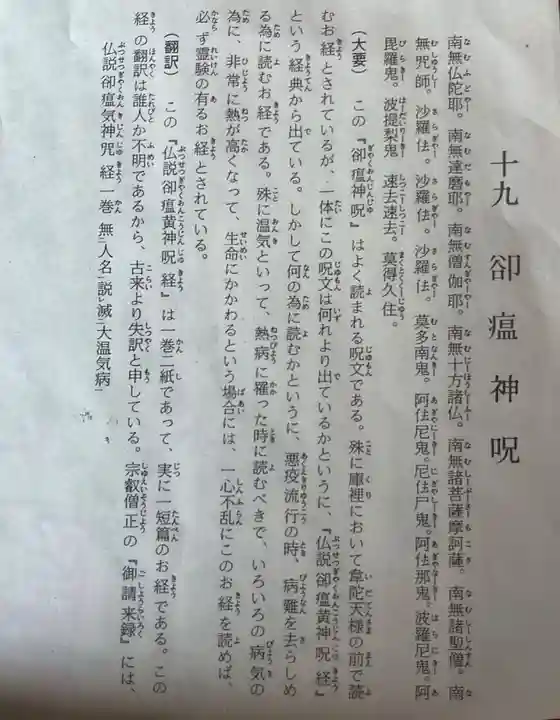 十九　卻瘟神呪
南無仏陀耶。南無達磨耶。南無僧伽耶。南無十方諸仏。南無諸菩薩摩訶薩。南無諸聖僧。南
無咒師。沙羅佉。沙羅佉。沙羅佉。莫多南鬼。阿佉尼鬼。尼佉尸鬼。阿佉那鬼。波羅尼鬼。阿
毘羅鬼。波提梨鬼　速去速去。莫得久住。
（大要）　この『卻瘟神呪』はよく読まれる呪文である。殊に庫裡において韋陀天様の前で読
むお経とされているが、一体にこの呪文は何れより出ているかというに、『仏説卻瘟黄神呪経』
という経典から出ている。しかして何の為に読むかというに、悪疫流行の時、病難を去らしめ
る為に読むお経である。殊に温気といって、熱病に罹った時に読むべきで、いろいろの病気の
為に、非常に熱が高くなって、生命にかかわるという場合には、一心不乱にこのお経を読めば、
必ず霊験の有るお経とされている。
（翻訳）　この『仏説卻瘟黄神呪経』は一巻二紙であって、実に一短篇のお経である。この
経の翻訳は誰人か不明であるから、古来より失訳と申している。宗叡僧正の『御請来録』には、
仏説卻瘟気神咒経一巻　無二人名一説レ滅二大温気病一